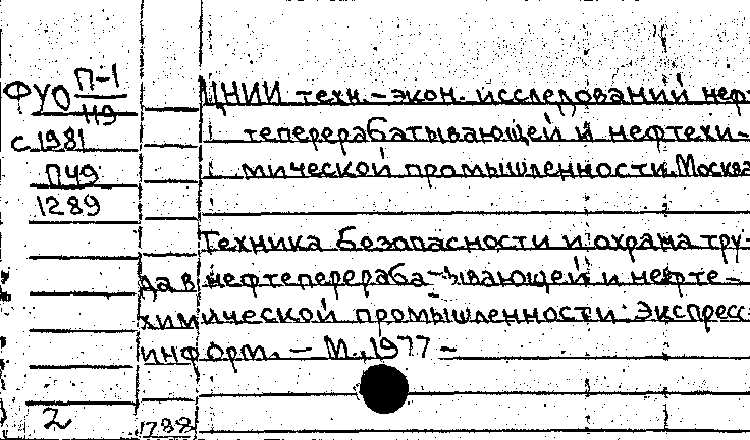 ФУО П-1
119
с 1981
П49
1289
ЦНИИ техн.-экон. исследований неф-
теперерабатывающей и нефтехи-
мической промышленности. Москва
Техника безопасности и охрана тру-
да в нефтеперерабатывающей и нефте-
химической промышленности: Экспресс-
информ. — М., 1977 -
2
1788